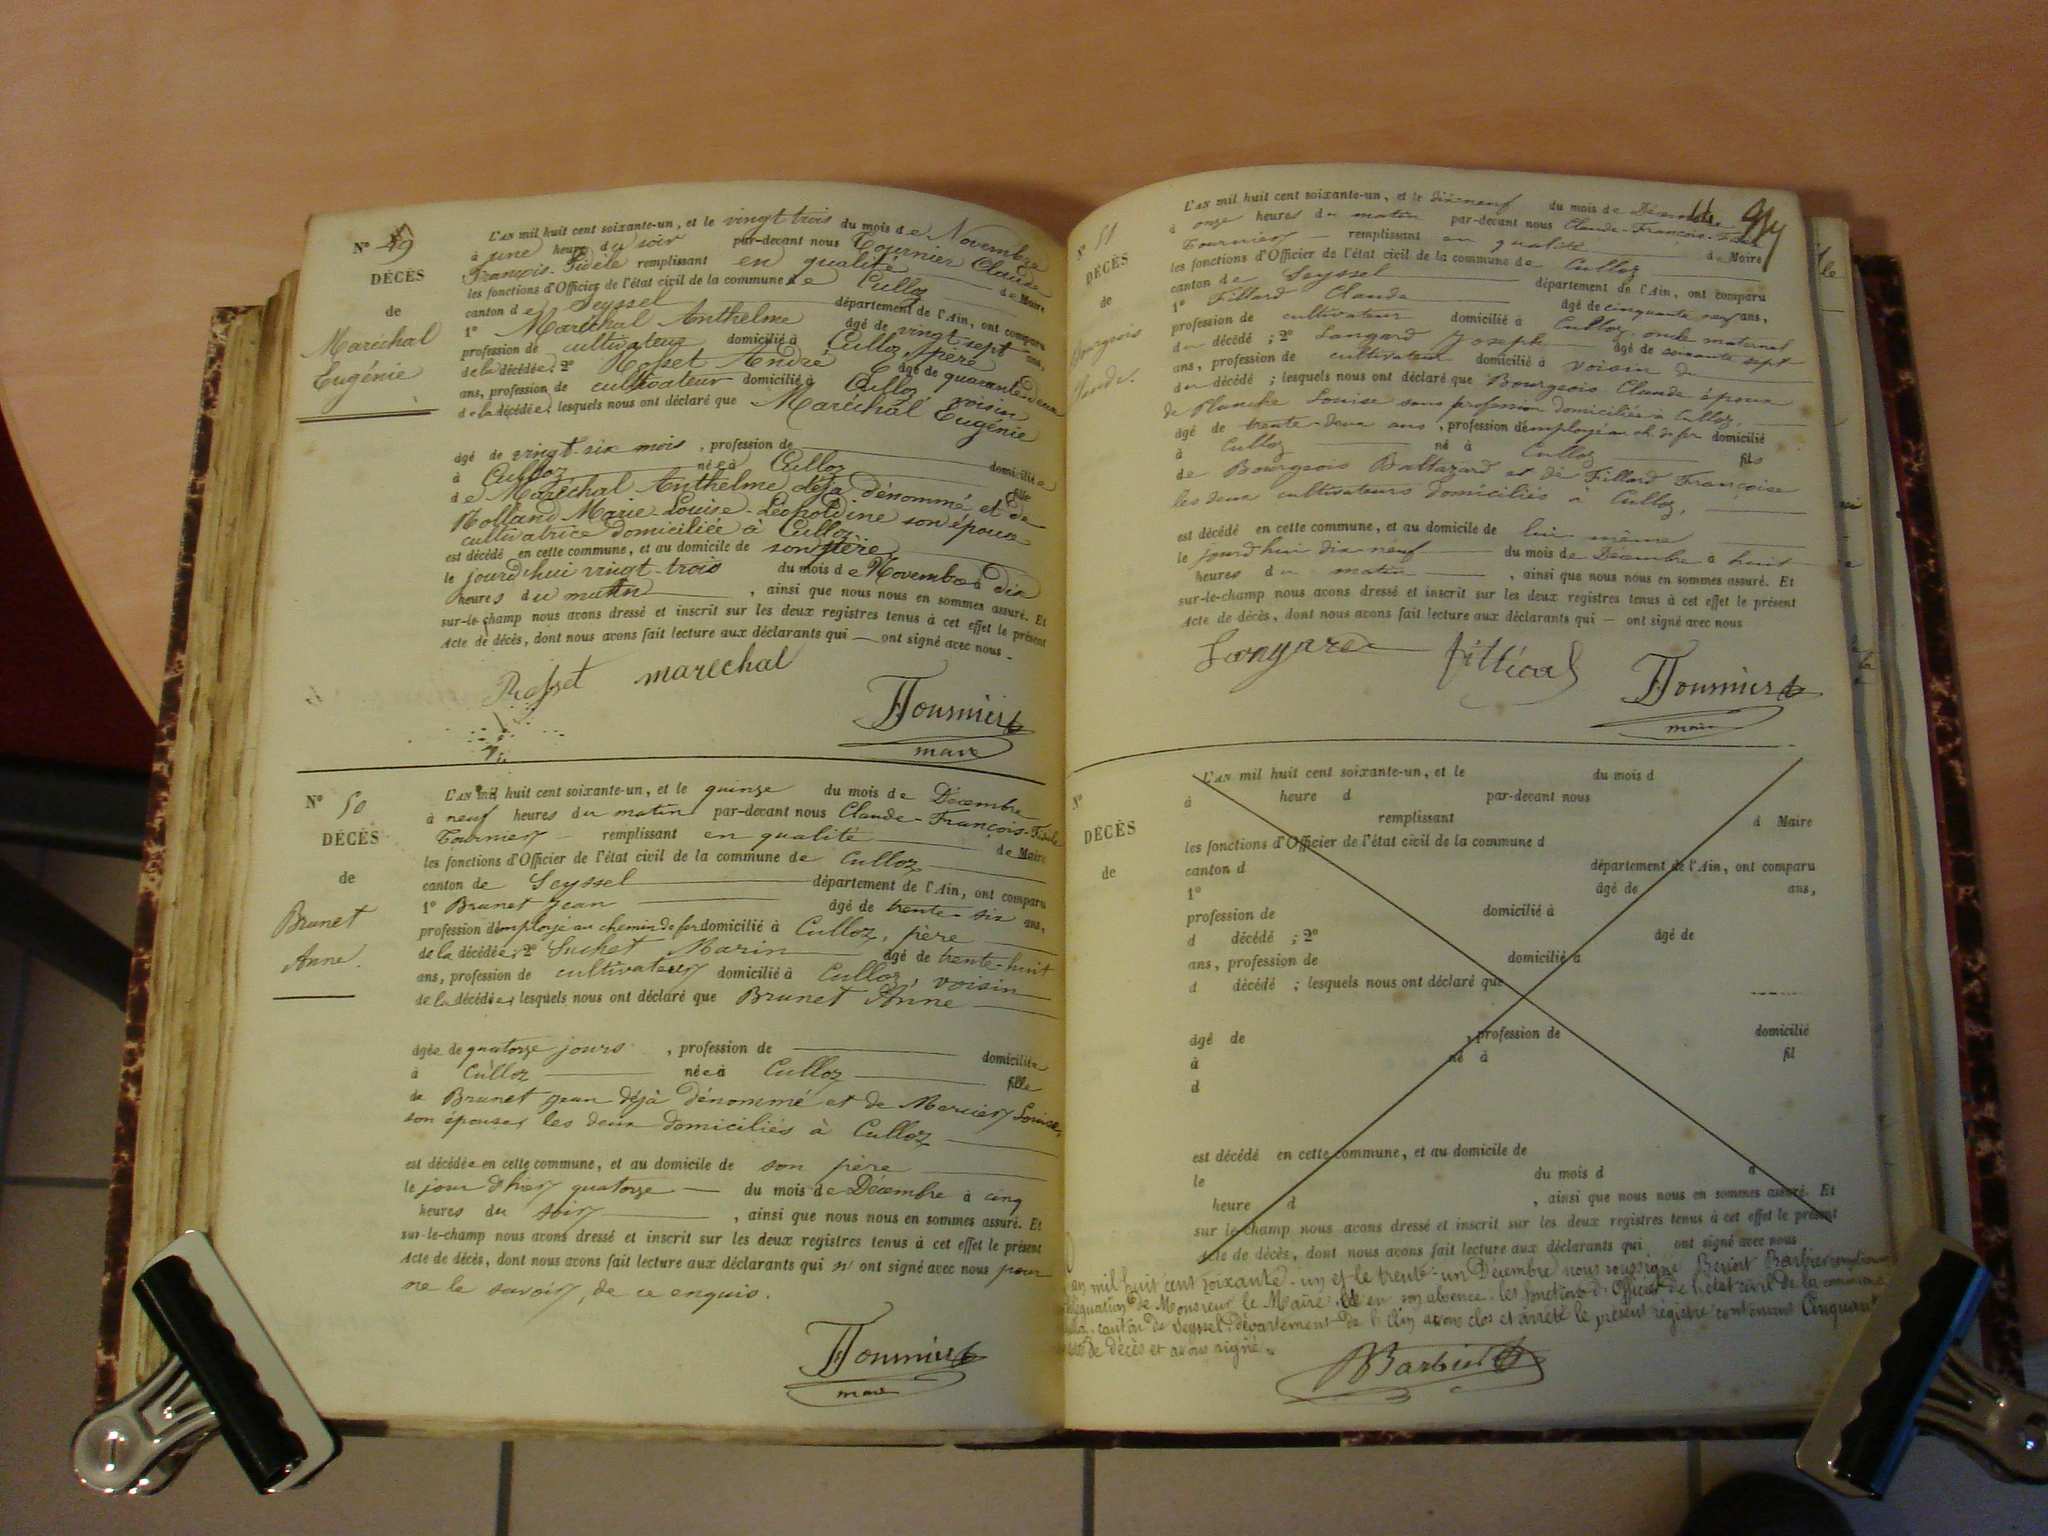 N° 49
DÉCÈS
de
Maréchal
Eugénie
L'AN mil huit cent soixante-un, et le vingt trois du mois de Novembre
à une heure du soir par-devant nous Tournier Claude
François-Fidèle remplissant en qualité de Maire
les fonctions d'Officier de l'état civil de la commune de Culloz
canton de Seyssel département de l'Ain, ont comparu
1° Maréchal Anthelme âgé de vingt sept ans,
profession de cultivateur domicilié à Culloz, père
de la décédée; 2° Rosset André âgé de quarante deux
ans, profession de cultivateur domicilié à Culloz, voisin
de la décédée; lesquels nous ont déclaré que Maréchal Eugénie
âgé de vingt-six mois, profession de domiciliée
à Culloz née à Culloz fille
de Maréchal Anthelme déja dénommé et de
Rolland Marie Louise-Léopoldine son épouse
cultivatrice domiciliée à Culloz
est décédé en cette commune, et au domicile de son père
le jourd'hui vingt-trois du mois de Novembre à dix
heures du matin, ainsi que nous nous en sommes assuré. Et
sur-le-champ nous avons dressé et inscrit sur les deux registres tenus à cet effet le présent
Acte de décès, dont nous avons fait lecture aux déclarants qui — ont signé avec nous
Rosset marechal
Tournier
maire
N° 50
DÉCÈS
de
Brunet
Anne.
L'AN mil huit cent soixante-un, et le quinze du mois de Décembre
à neuf heures du matin par-devant nous Claude-François-Fidèle
Tournier remplissant en qualité de Maire
les fonctions d'Officier de l'état civil de la commune de Culloz
canton de Seyssel département de l'Ain, ont comparu
1° Brunet Jean âgé de trente-six ans,
profession d'employé au chemin de fer domicilié à Culloz, père
de la décédée; 2° Suchet Marin âgé de trente-huit
ans, profession de cultivateur domicilié à Culloz, voisin
de la décédée; lesquels nous ont déclaré que Brunet Anne
âgée de quatorze jours, profession de domiciliée
à Culloz née à Culloz fille
de Brunet Jean déjà dénommé et de Mercier Louise,
son épouse, les deux domiciliés à Culloz
est décédée en cette commune, et au domicile de son père
le jour d'hier quatorze du mois de Décembre à cinq
heures du soir, ainsi que nous nous en sommes assuré. Et
sur-le-champ nous avons dressé et inscrit sur les deux registres tenus à cet effet le présent
Acte de décès, dont nous avons fait lecture aux déclarants qui n'ont signé avec nous pour
ne le savoir, de ce enquis.
Tournier
maire
N° 51
DÉCÈS
de
Bourgeois
Claude.
L'AN mil huit cent soixante-un, et le dix-neuf du mois de Décembre
à onze heures du matin par-devant nous Claude-François-Fidèle
Tournier remplissant en qualité de Maire
les fonctions d'Officier de l'état civil de la commune de Culloz
canton de Seyssel département de l'Ain, ont comparu
1° Fillard Claude âgé de cinquante neuf ans,
profession de cultivateur domicilié à Culloz, oncle maternel
du décédé; 2° Langard Joseph âgé de soixante sept
ans, profession de cultivateur domicilié à voisin du
du décédé; lesquels nous ont déclaré que Bourgeois Claude époux
de Planche Louise sans profession domiciliée à Culloz,
âgé de trente-deux ans, profession d'employé au ch. de fer domicilié
à Culloz né à Culloz fils
de Bourgeois Baltazard et de Fillard Françoise
les deux cultivateurs domiciliés à Culloz,
est décédé en cette commune, et au domicile de lui même
le jourd'hui dix-neuf du mois de Décembre à huit
heures du matin, ainsi que nous nous en sommes assuré. Et
sur-le-champ nous avons dressé et inscrit sur les deux registres tenus à cet effet le présent
Acte de décès, dont nous avons fait lecture aux déclarants qui — ont signé avec nous
Langard fillard
Tournier
maire
N°
DÉCÈS
de
L'AN mil huit cent soixante-un, et le du mois d
à heure d par-devant nous
remplissant d Maire
les fonctions d'Officier de l'état civil de la commune d
canton d département de l'Ain, ont comparu
1° âgé de ans,
profession de domicilié à
d décédé; 2° âgé de
ans, profession de domicilié à
d décédé; lesquels nous ont déclaré que
âgé de, profession de domicilié
à né à fil
d
est décédé en cette commune, et au domicile de
le du mois d à
heure d, ainsi que nous nous en sommes assuré. Et
sur-le-champ nous avons dressé et inscrit sur les deux registres tenus à cet effet le présent
Acte de décès, dont nous avons fait lecture aux déclarants qui ont signé avec nous
en mil huit cent soixante-un et le trente-un Décembre nous soussigné Benoit Barbier
délégation de Monsieur le Maire en son absence les fonctions d'Officier de l'état civil de la commune
canton de Seyssel, département de l'Ain avons clos et arrêté le présent registre contenant Cinquante
de décès et avons signé.
Barbier